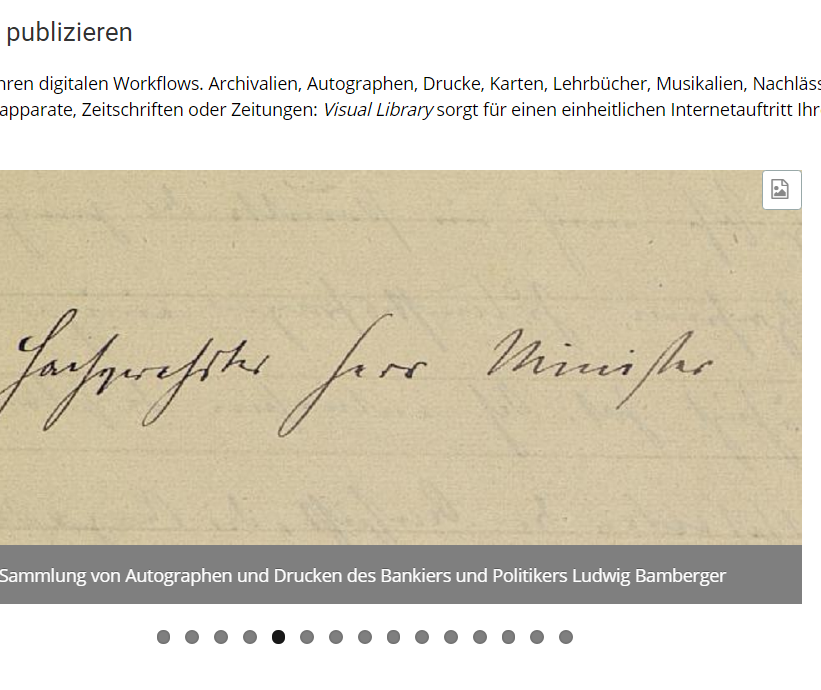 publizieren
hren digitalen Workflows. Archivalien, Autographen, Drucke, Karten, Lehrbücher, Musikalien, Nachläss
apparate, Zeitschriften oder Zeitungen: Visual Library sorgt für einen einheitlichen Internetauftritt Ihr
Hochgeehrter Herr Minister
Sammlung von Autographen und Drucken des Bankiers und Politikers Ludwig Bamberger